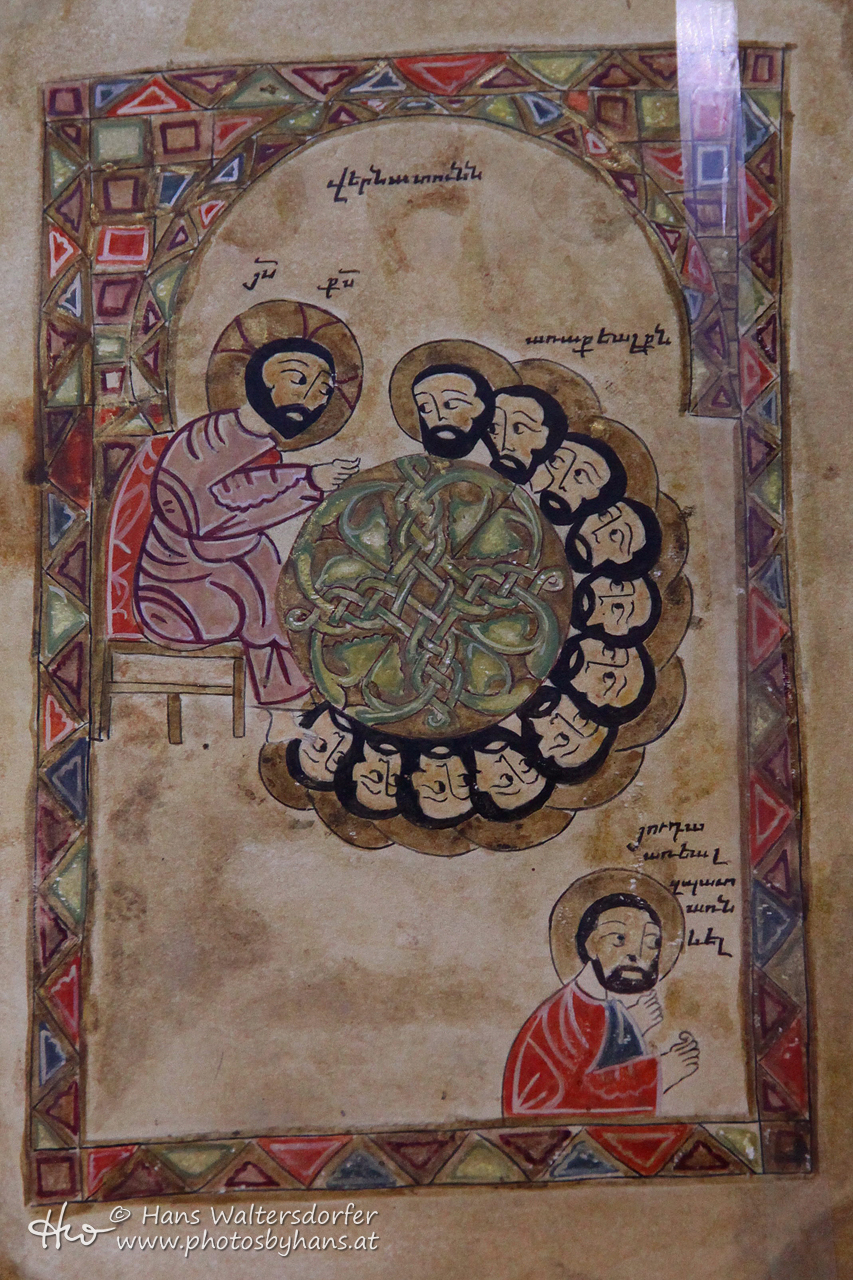 վերնատունն
յս քս
առաքեալքն
յուղա
առեալ
զպատ
առն
© Hans Waltersdorfer
www.photosbyhans.at